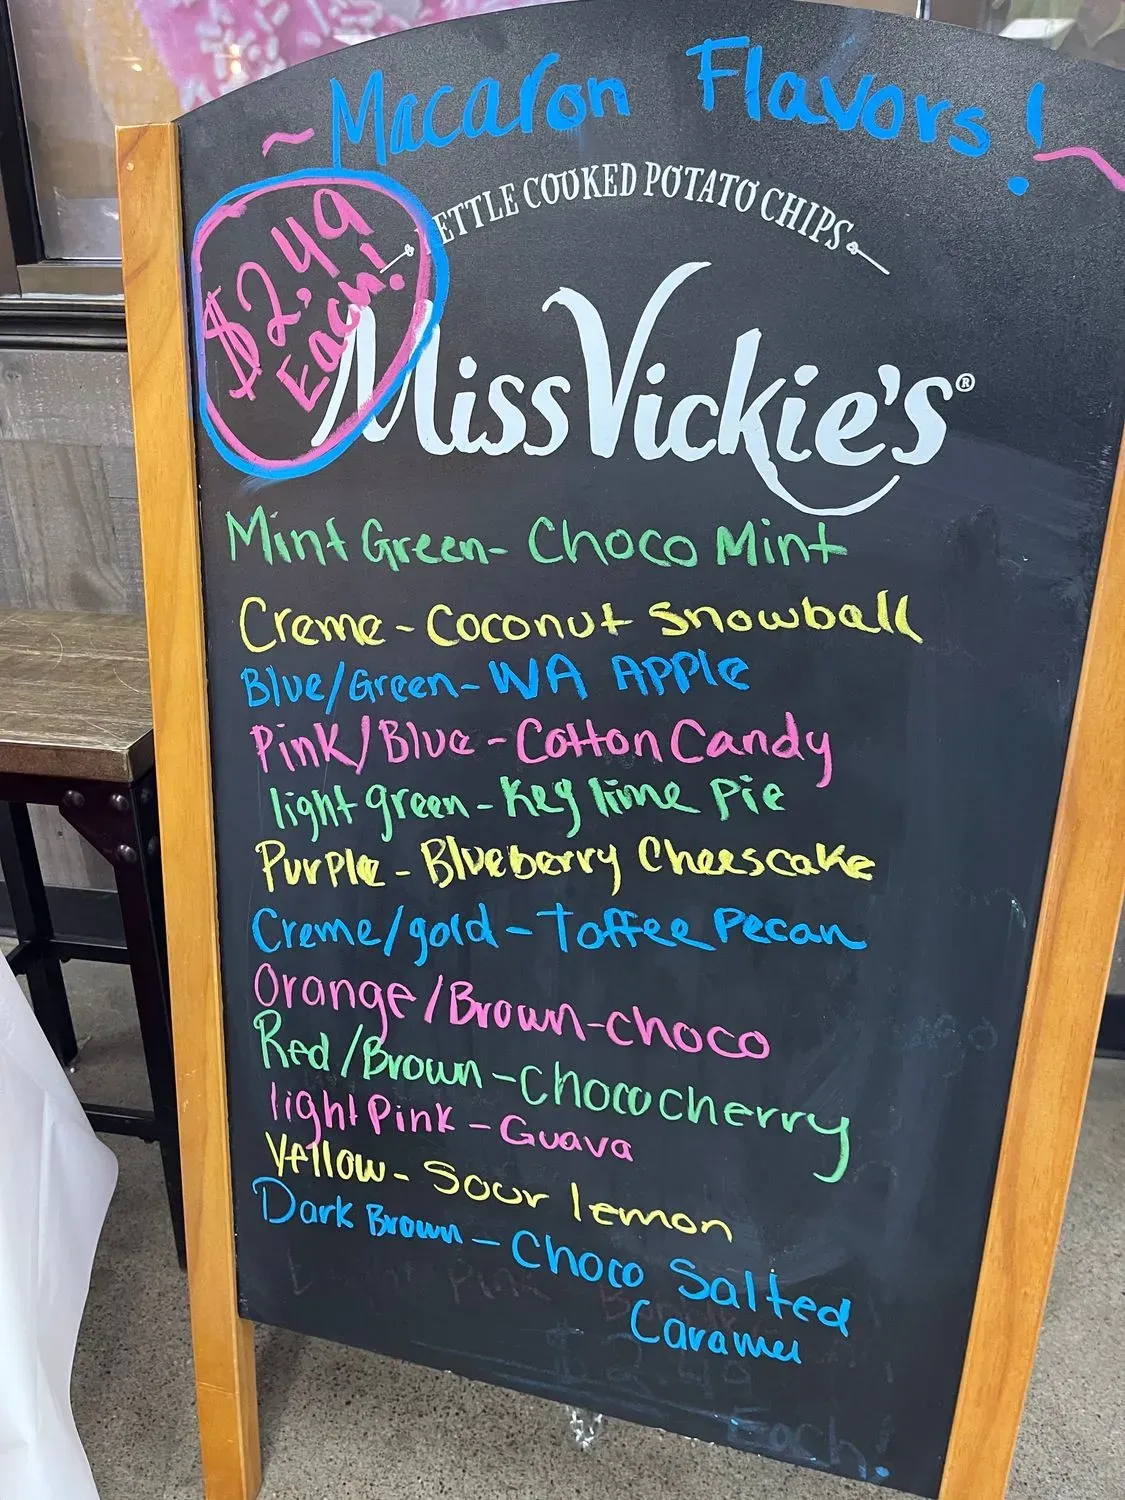 ~ Macaron Flavors! ~
$2.49
Each!
ETTLE COOKED POTATO CHIPS
Miss Vickie's®
Mint Green- Choco Mint
Creme - Coconut Snowball
Blue/Green- WA APPle
Pink/Blue - Cotton Candy
light green - Key lime Pie
Purple - Blueberry Cheescake
Creme/gold - Toffee Pecan
Orange/Brown-choco
Red/Brown -Choco cherry
light Pink - Guava
Yellow - Sour lemon
Dark Brown - Choco Salted
Caramel
Each!